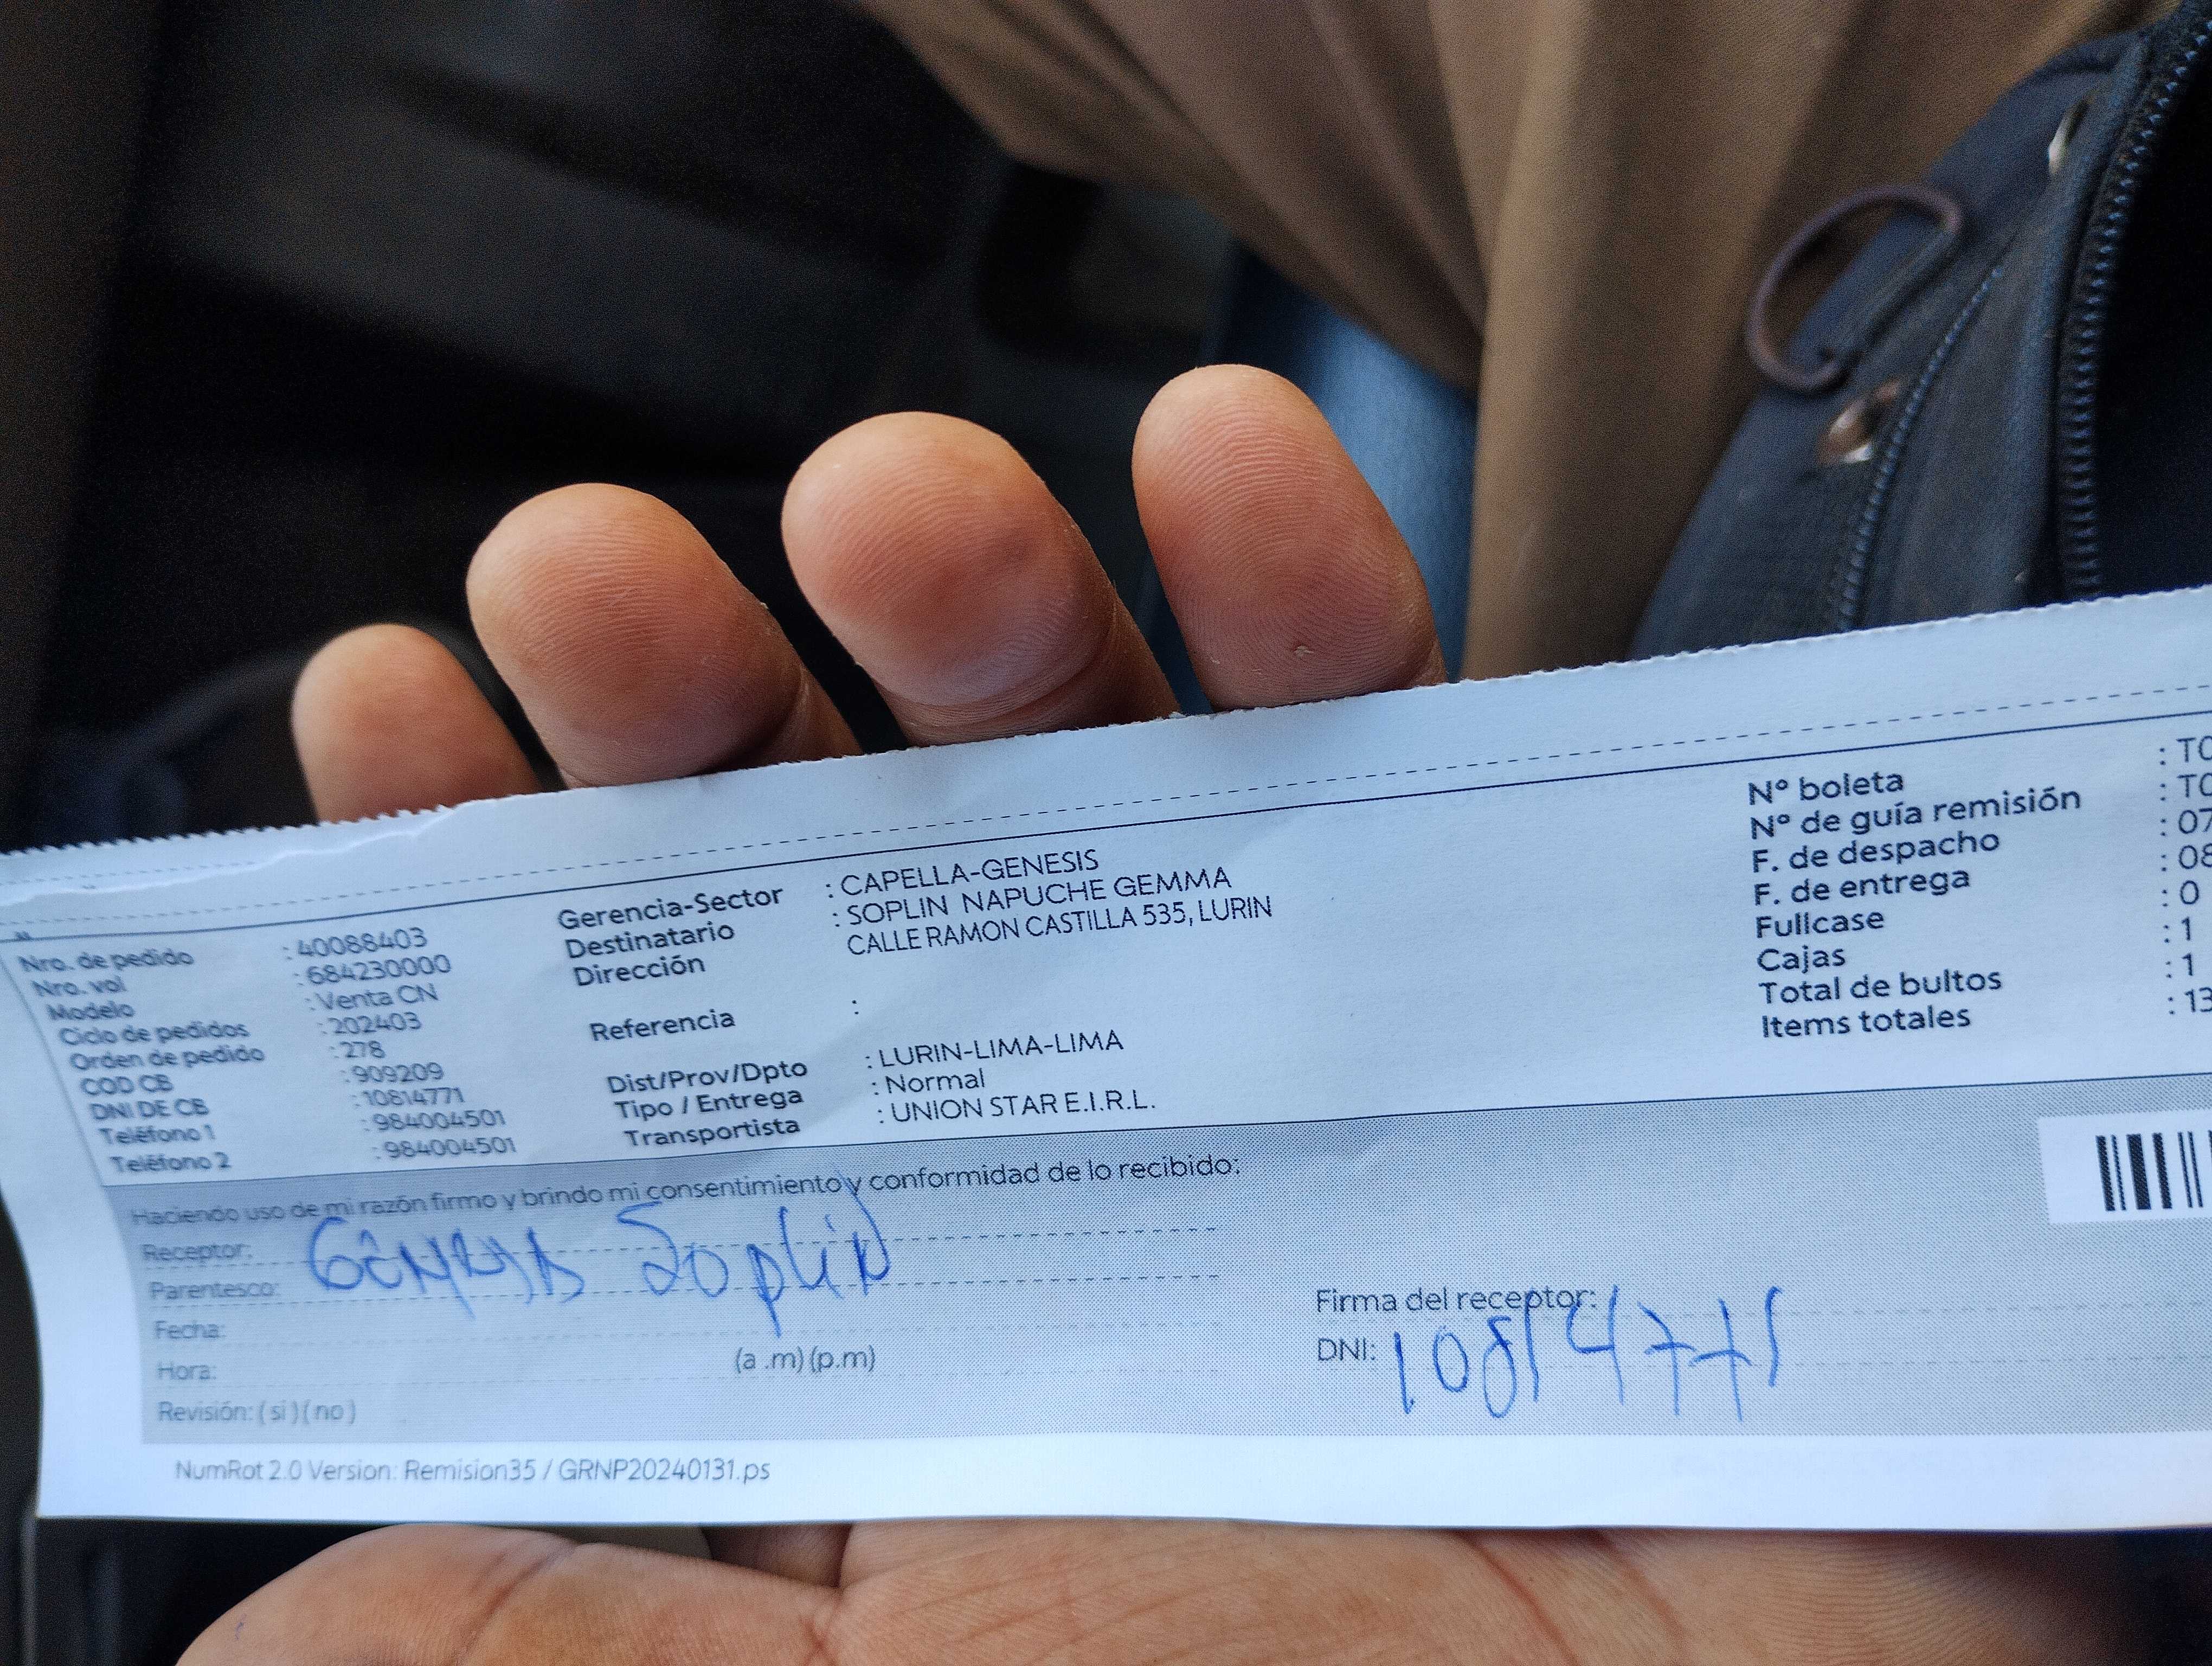 Nro. de pedido : 40088403
Nro. vol : 684230000
Modelo : Venta CN
Ciclo de pedidos : 202403
Orden de pedido : 278
COD CB : 909209
DNI DE CB : 10814771
Teléfono 1 : 984004501
Teléfono 2 : 984004501
Gerencia-Sector : CAPELLA-GENESIS
Destinatario : SOPLIN NAPUCHE GEMMA
Dirección CALLE RAMON CASTILLA 535, LURIN
Referencia :
Dist/Prov/Dpto : LURIN-LIMA-LIMA
Tipo / Entrega : Normal
Transportista : UNION STAR E.I.R.L.
Nº boleta : T0
Nº de guía remisión : T0
F. de despacho : 07
F. de entrega : 08
Fullcase : 0
Cajas : 1
Total de bultos : 1
Items totales : 13
Haciendo uso de mi razón firmo y brindo mi consentimiento y conformidad de lo recibido:
Receptor: Soplin
Parentesco:
Fecha:
Hora: (a .m) (p.m)
Revisión: ( si ) ( no )
Firma del receptor:
DNI: 10814771
NumRot 2.0 Version: Remision35 / GRNP20240131.ps